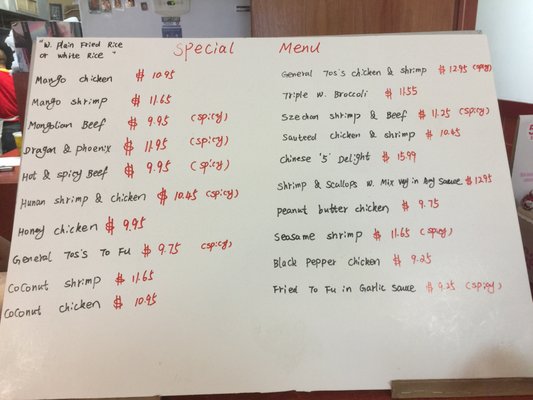 "W. Plain Fried Rice
or White Rice"
Special Menu
Mango chicken $ 10.95
Mango shrimp $ 11.65
Mongolian Beef $ 9.95 (spicy)
Dragon & phoenix $ 11.95 (spicy)
Hot & spicy Beef $ 9.95 (spicy)
Hunan shrimp & chicken $ 10.45 (spicy)
Honey chicken $ 9.95
General Tos's To Fu $ 9.75 (spicy)
Coconut shrimp $ 11.65
Coconut chicken $ 10.95
General Tos's chicken & shrimp $ 12.95 (spicy)
Triple W. Broccoli $ 11.55
Szechan shrimp & Beef $ 11.25 (spicy)
Sauteed chicken & shrimp $ 10.65
Chinese '5' Delight $ 15.99
Shrimp & Scallops W. Mix Veg in Sauce $ 12.95
Peanut butter chicken $ 9.75
Seasame shrimp $ 11.65 (spicy)
Black Pepper chicken $ 9.25
Fried To Fu in Garlic Sauce $ 9.25 (spicy)